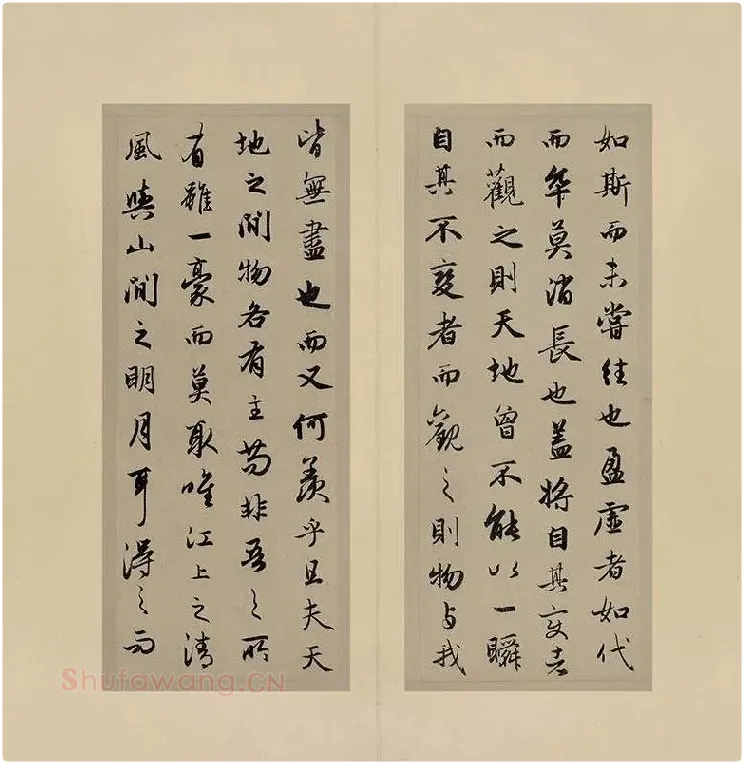 如斯而未嘗往也盈虛者如代
而卒莫消長也蓋將自其變者
而觀之則天地曾不能以一瞬
自其不變者而觀之則物与我
皆無盡也而又何羨乎且夫天
地之間物各有主苟非吾之所
有雖一豪而莫取唯江上之清
風與山間之明月耳得之而
Shufawang.CN